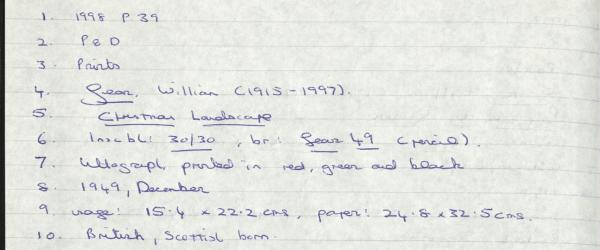 1. 1998 P 39
2. P & D
3. Prints
4. Gear, William (1915-1997).
5. Christmas Landscape
6. Inscbl: 30/30, br: Gear 49 (pencil).
7. Lithograph, printed in red, green and black
8. 1949, December
9. image: 15.4 x 22.2 cms, paper: 24.8 x 32.5 cms.
10. British, Scottish born.